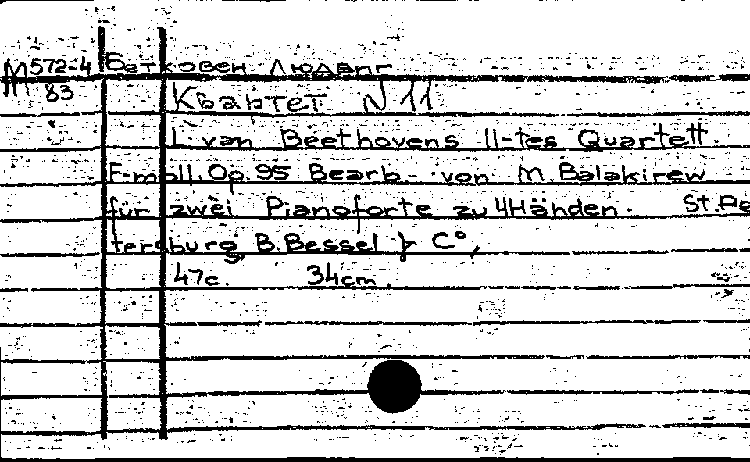 M 572-4 Бетховен Людвиг
83 Квартет N 11
L. van Beethovens 11-tes Quartett.
F-moll. Op. 95 Bearb. von M. Balakirew
für zwei Pianoforte zu 4 Händen. St. Pe
tersburg B. Bessel & C°,
47c. 34cm.